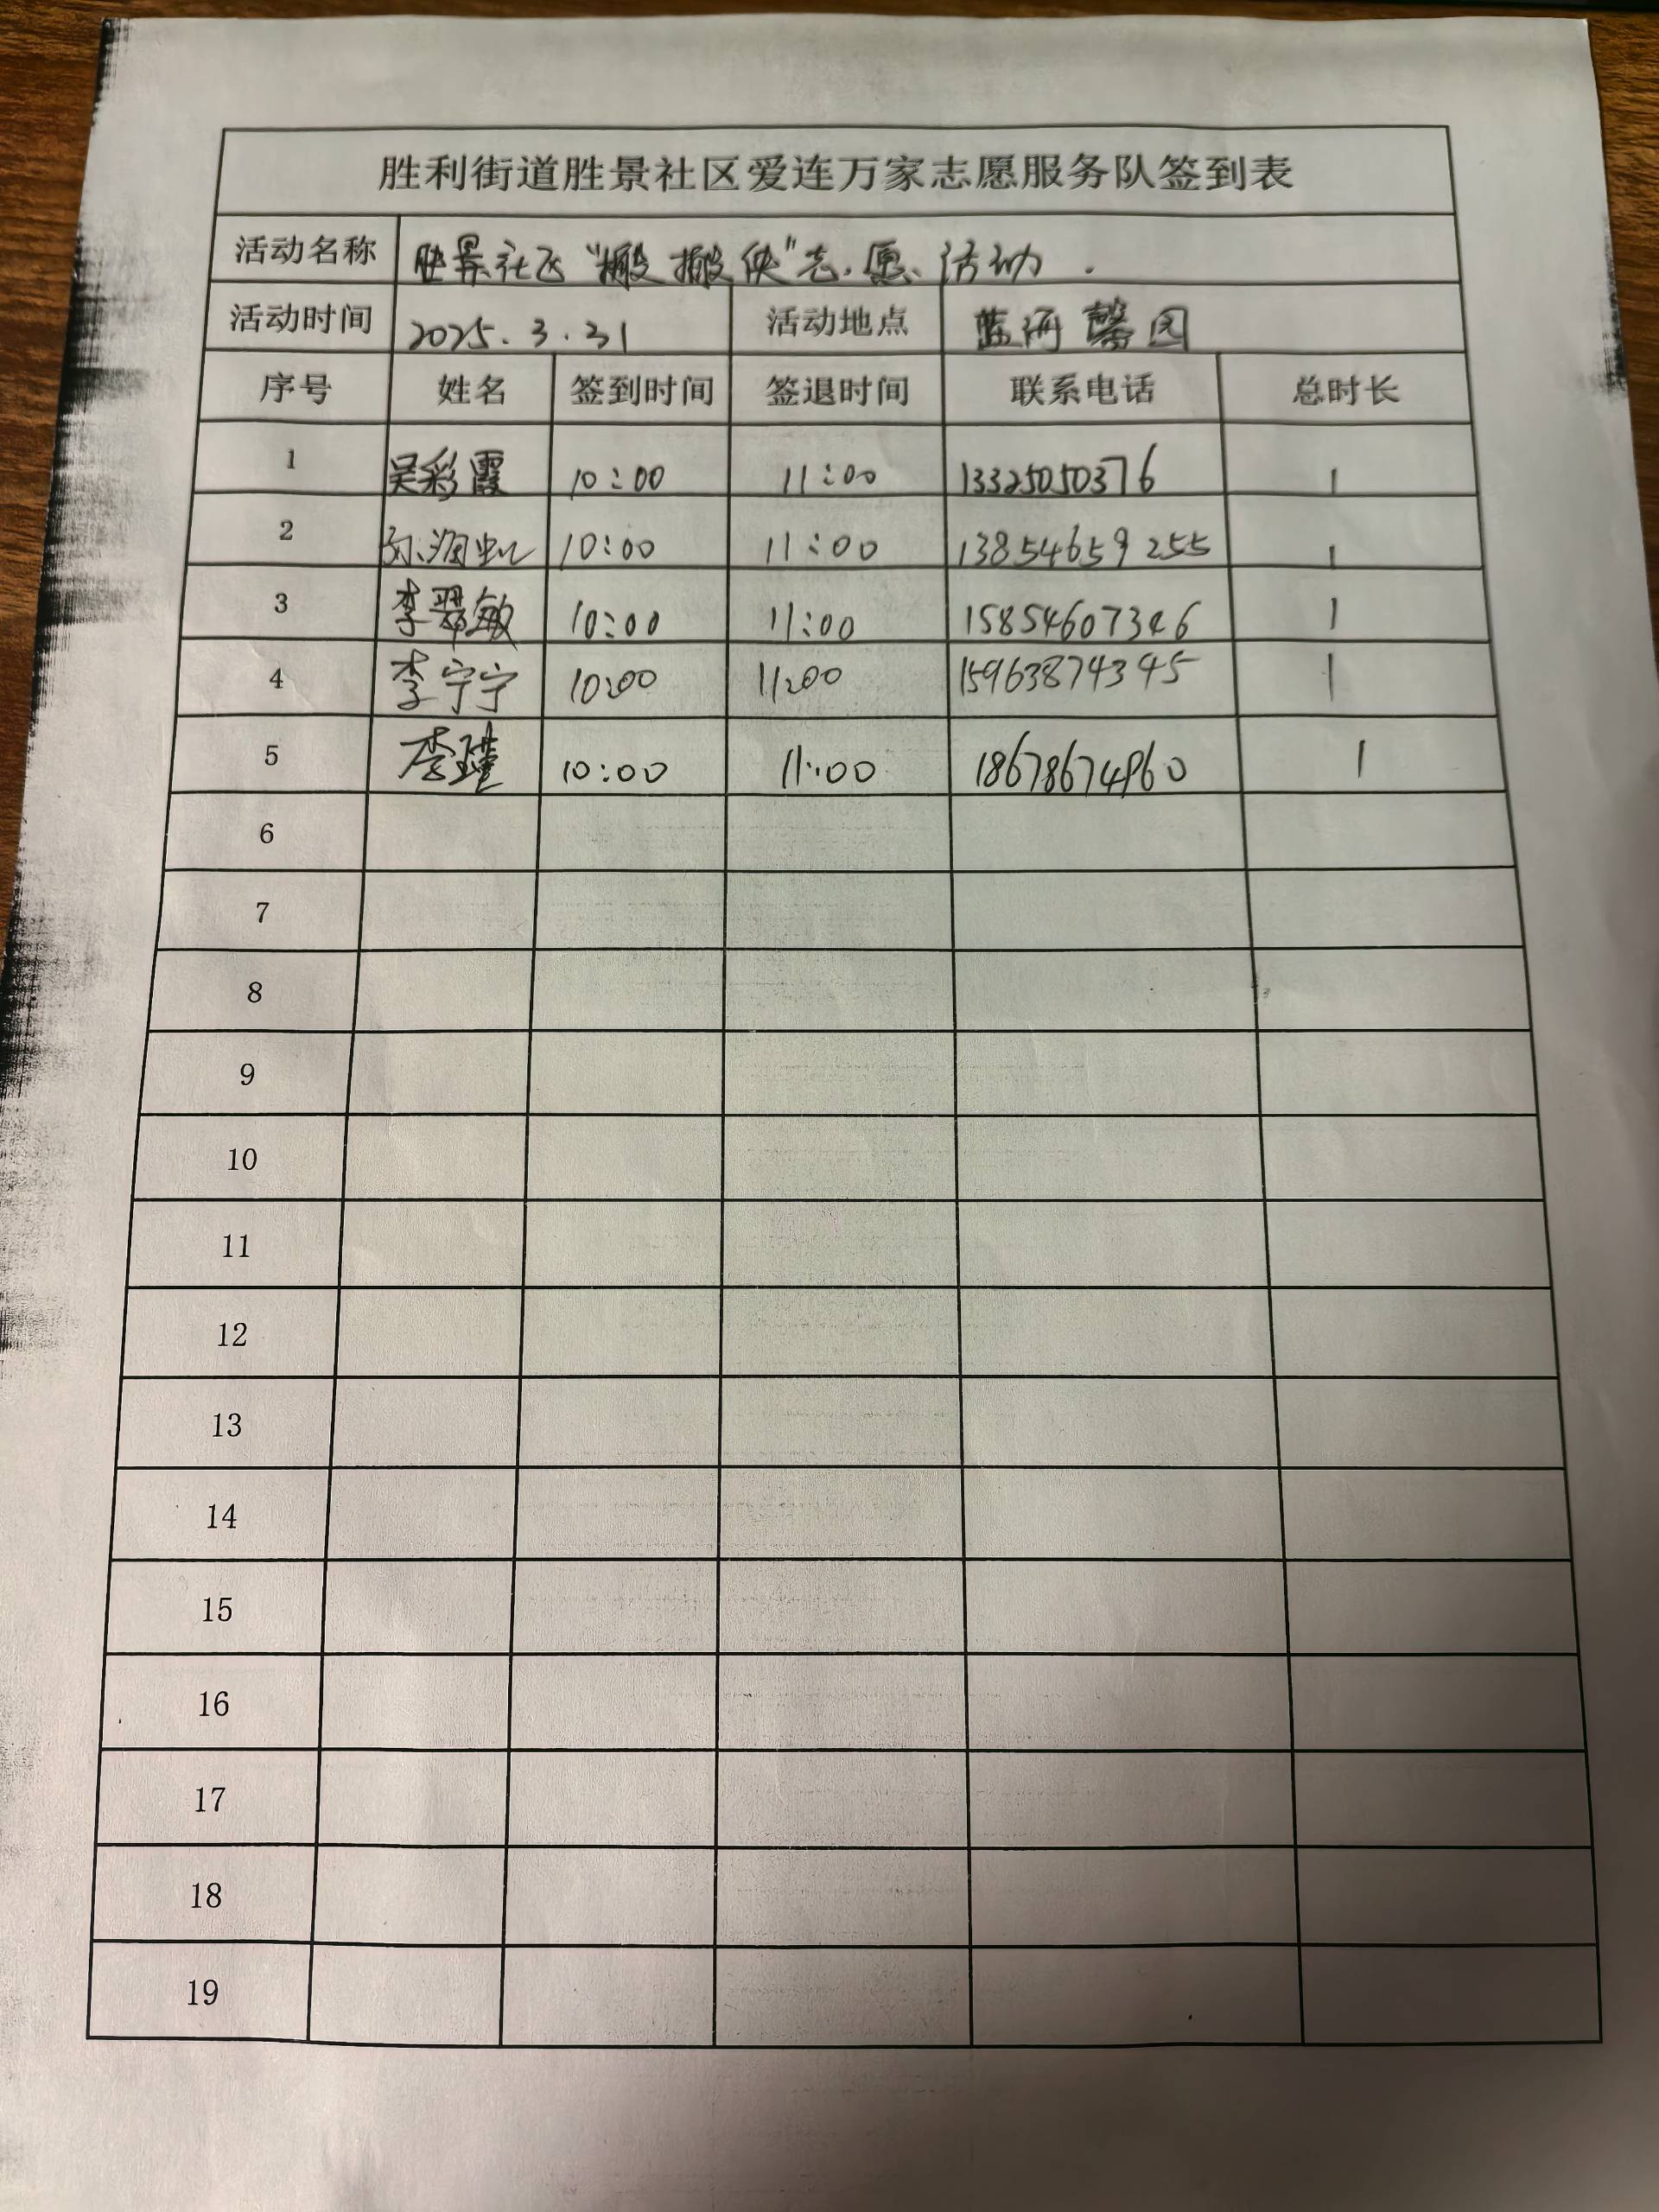 胜利街道胜景社区爱连万家志愿服务队签到表
活动名称 胜景社区“搬搬侠”志愿活动.
活动时间 2025.3.31 活动地点 蓝海馨园
序号 姓名 签到时间 签退时间 联系电话 总时长
1 吴彩霞 10:00 11:00 13325050376 1
2 10:00 11:00 13854659255 1
3 李翠敏 10:00 11:00 1
4 李宁宁 10:00 11:00 15963874345 1
5 李瑾 10:00 11:00 18678674960 1
6
7
8
9
10
11
12
13
14
15
16
17
18
19